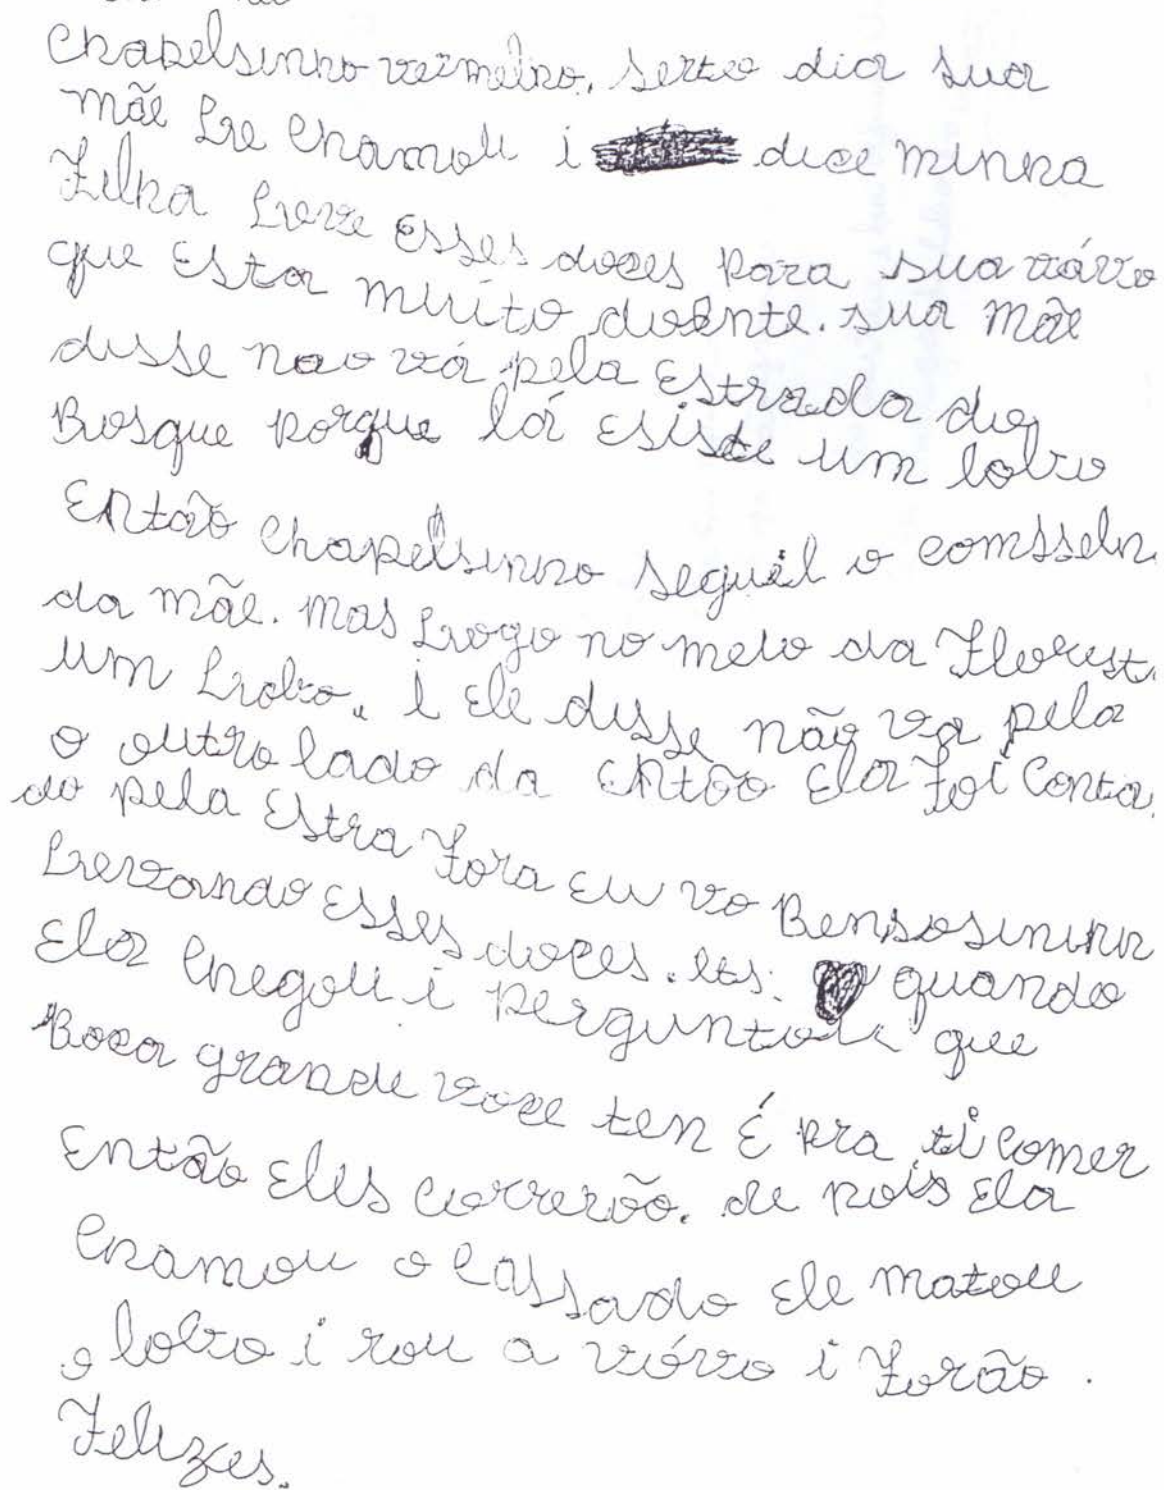 Chapelsinho vermelho. serto dia sua
mãe Lre Chamou i dice minha
Filha Leve Esses doses para sua vóvo
que Esta muito doente. sua mãe
disse nao vá pela Estrada do
Bosque porque lá esiste um lobo
Então Chapelsinho seguil o comsseln
da mãe. mas Logo no meio da Florest
um Lobo. i Ele disse não va pela
o outro lado da Entõo Ela Foi Conta
do pela Estra Fora Eu vo Bensosinhn
Levando Esses doces. ets. quando
Ela Chegou i perguntou que
Boca grande voce ten É pra ti Comer
Então Eles correrão. de pois Ela
Chamou o Cassado Ele matou
o lobo i rou a vóvo i Forão.
Felizes.